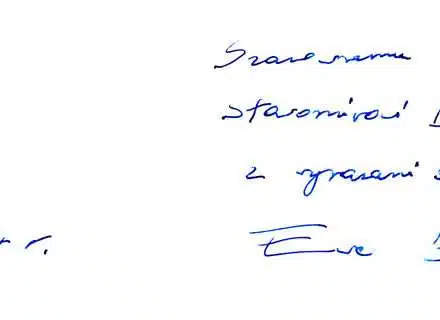 Szanownemu
Sławomirowi
z wyrazami
r. Ewa